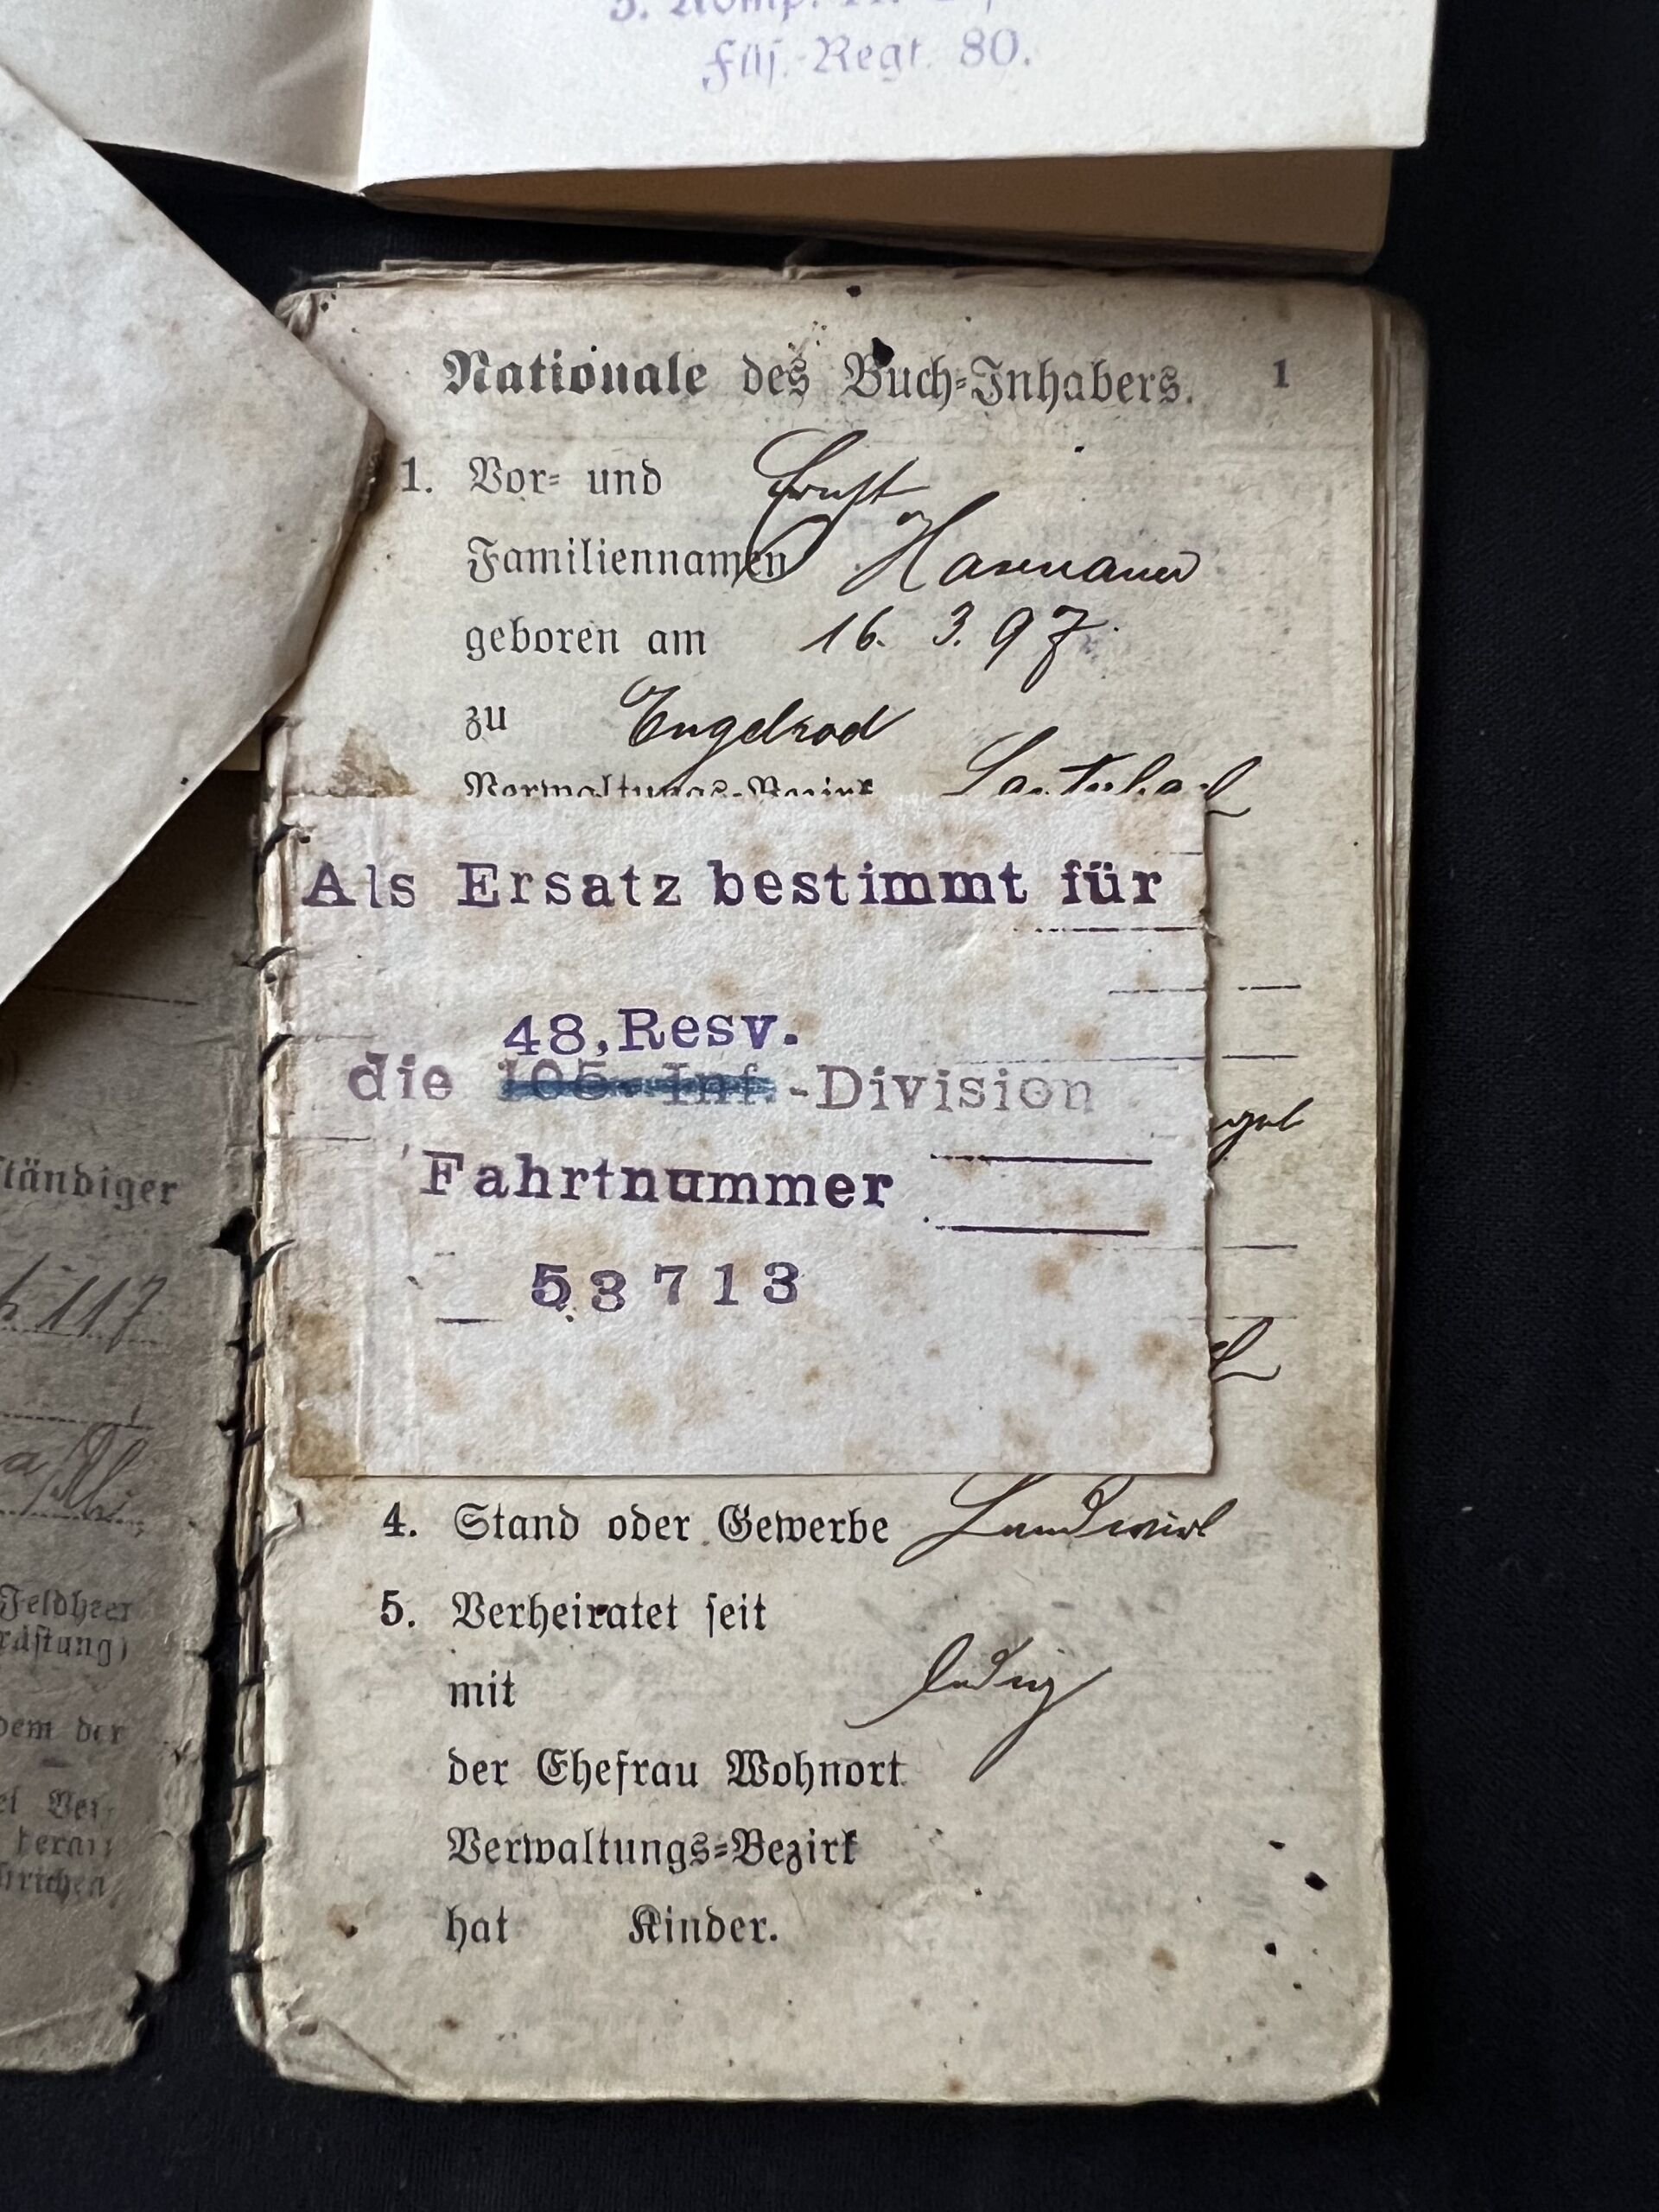 Füs.-Regt. 80.
Nationale des Buch-Inhabers. 1
1. Vor- und Ernst
Familiennamen
geboren am 16. 3. 97.
zu Engelrod
Verwaltungs-Bezirk Lauterbach
Als Ersatz bestimmt für
48,Resv.
die 105. Inf.-Division
Fahrtnummer
53713
4. Stand oder Gewerbe Landwirt
5. Verheiratet seit
mit ledig
der Ehefrau Wohnort
Verwaltungs-Bezirk
hat Kinder.
ständiger
117
Feldheer
dem der